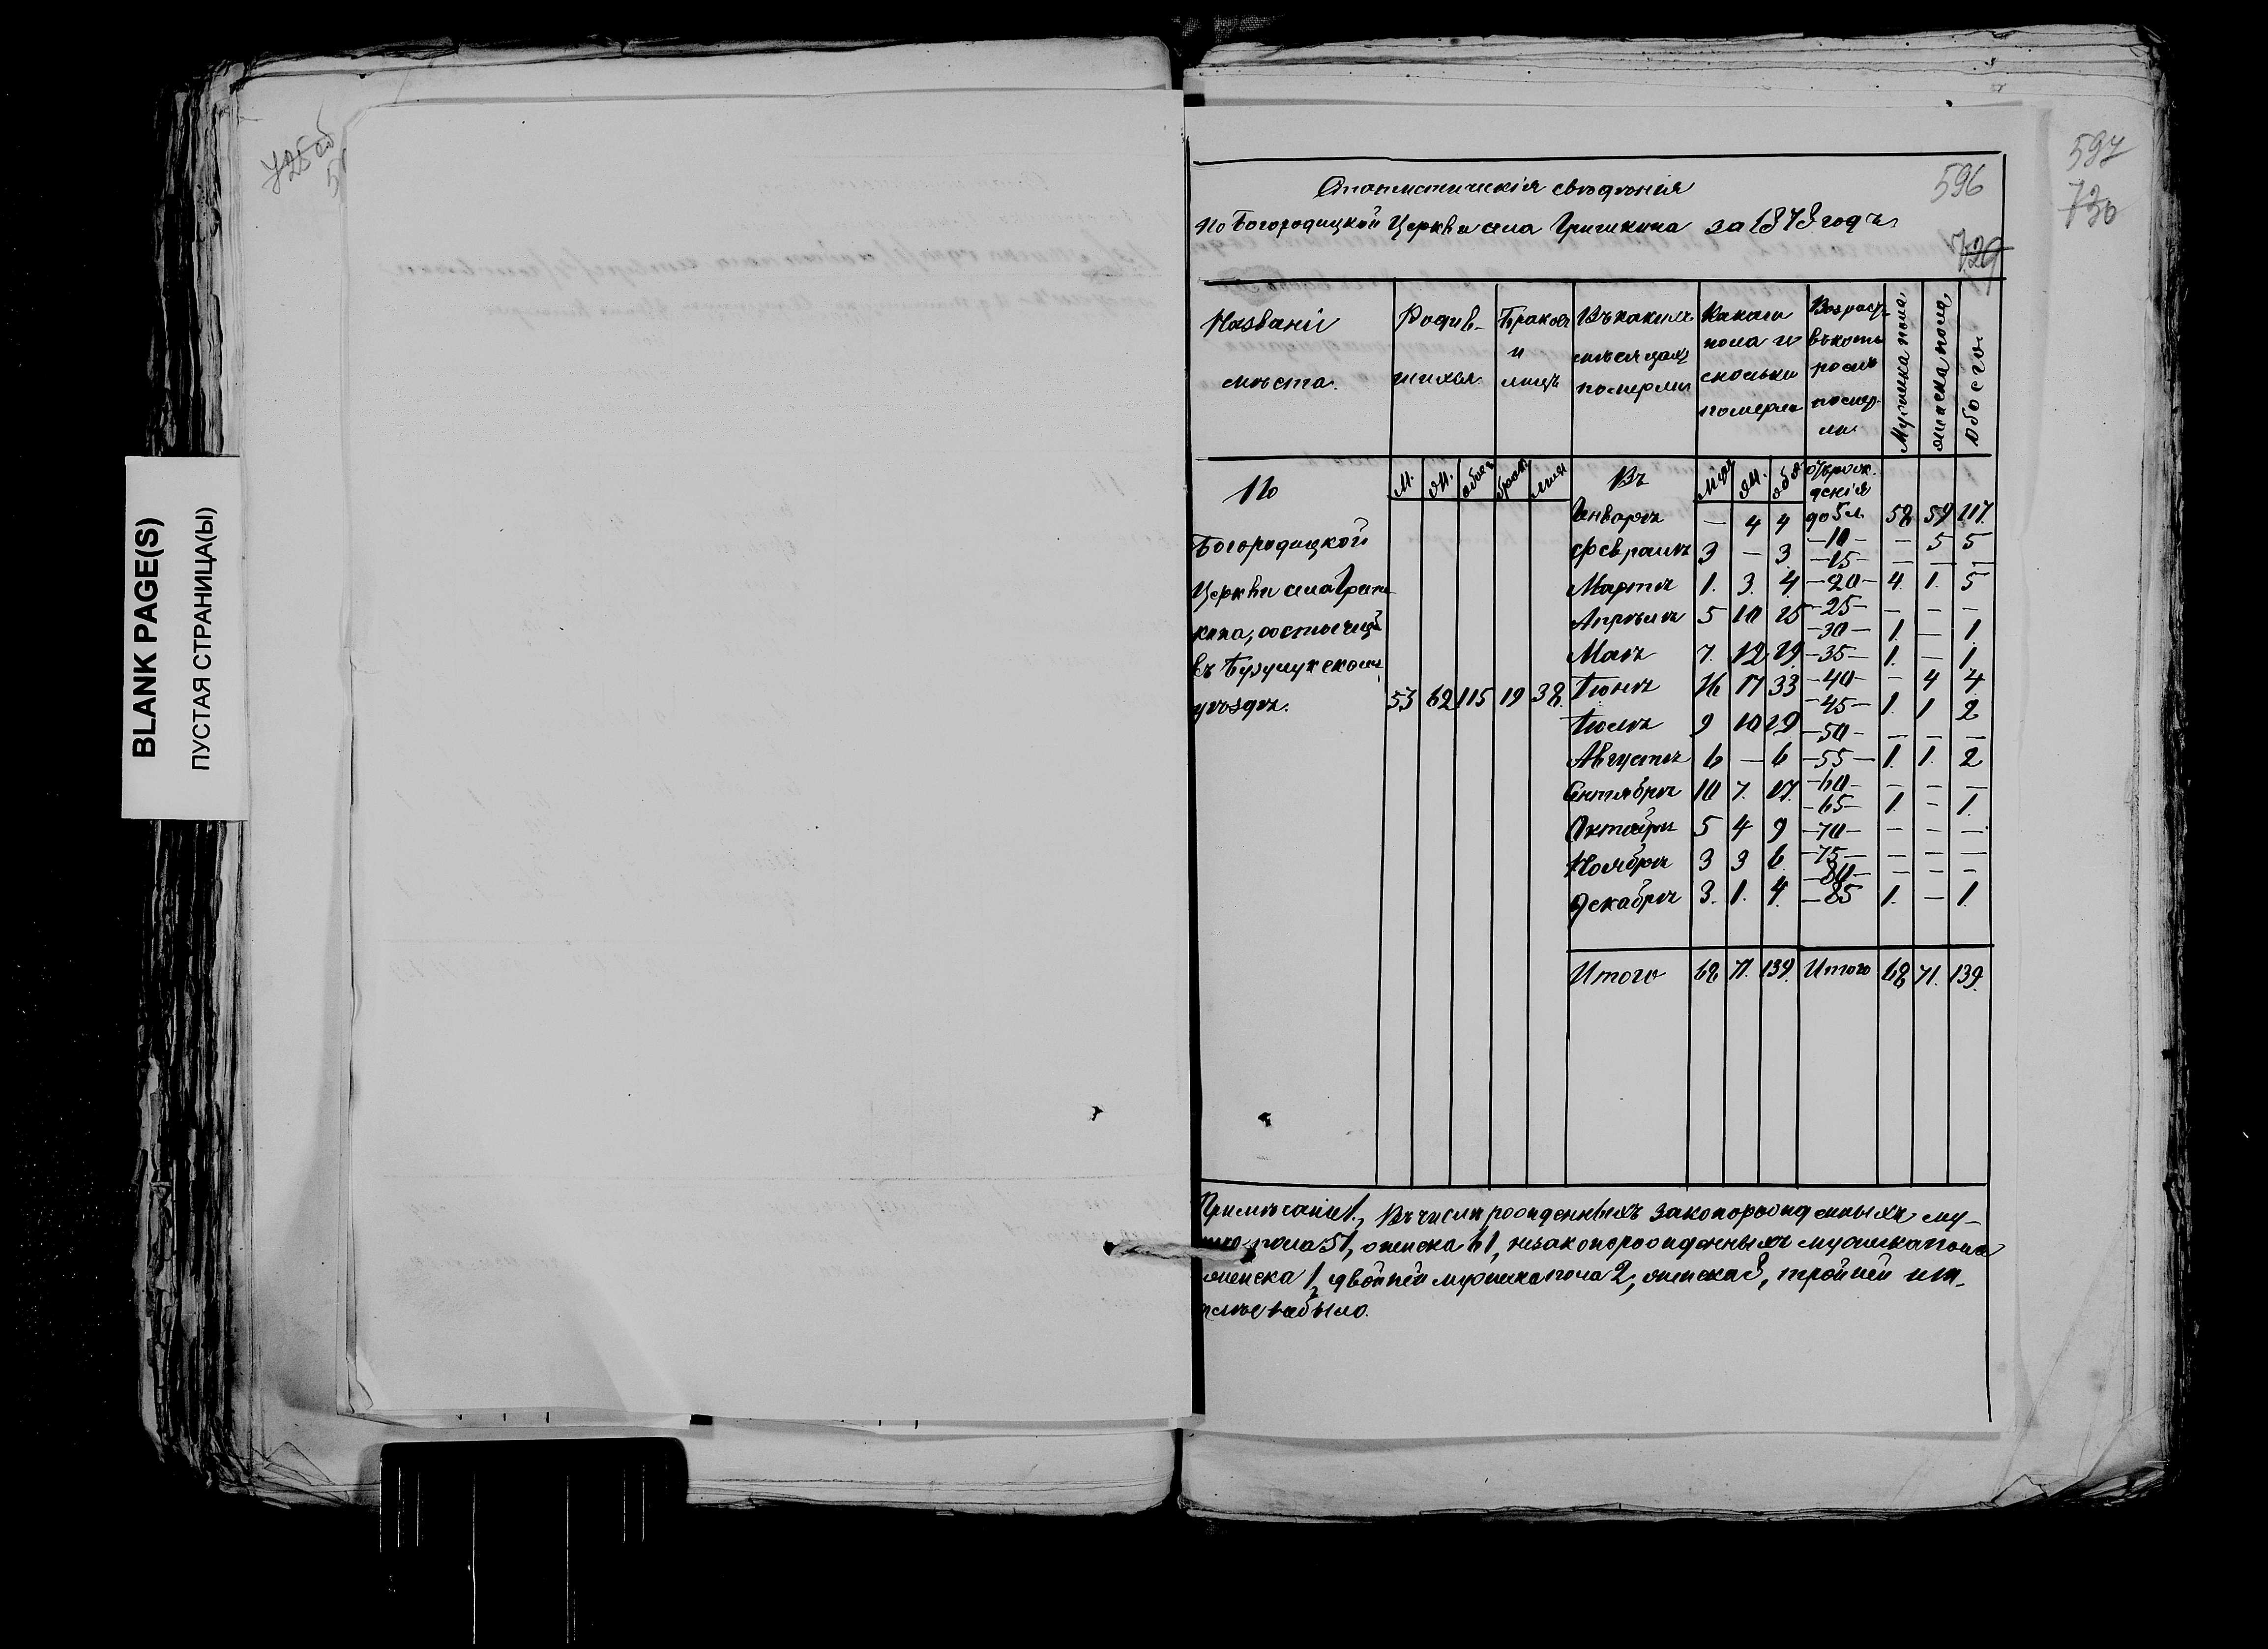 725 об
BLANK PAGE(S)
ПУСТАЯ СТРАНИЦА(Ы)
597
730
596
729
Статистическія свѣдѣнія
по Богородицкой Церкви села Гришкина за 1878 годъ
Названіе мѣста.
Родив-шихся.
Браковъ и лицъ
Въ какихъ мѣсяцахъ померли
Какого пола и сколько померли
Возраст въ кото ромъ помер-ли
Мужска пола
женска пола
Обоего
По | М. | Ж. | обоег | брак | лицъ | Въ | Муж | Ж. | обое | От рож-
денія
Январѣ — 4 4 до 5 л. 58 59 117.
Богородицкой Февралѣ 3 — 3. —10— — 5 5
—15— — — —
Церкви села Гриш- Мартѣ 1. 3. 4 —20— 4. 1. 5
кина, состоящей Апрѣлѣ 5 10 15 —25— — — —
—30— 1. — 1.
въ Бузулукскомъ Маѣ 7. 12 19. —35— 1. — 1.
уѣздѣ. 53 62 115 19 38. Іюнѣ 16 17 33 —40— — 4 4
—45— 1. 1 2
Іюлѣ 9 10 19 —50— — — —
Августѣ 6 — 6 —55— 1. 1. 2
Сентябрѣ 10 7. 17. —60— — — —
—65— 1. — 1.
Октябрѣ 5 4 9 —70— — — —
Ноябрѣ 3 3 6 —75— — — —
—80— — — —
Декабрѣ 3. 1. 4. —85 1. — 1.
Итого 68 71. 139. Итого 68 71. 139.
Примѣчаніе 1., Въ числѣ рожденныхъ законорожденныхъ му-
пола 51, женска 61, незаконорожденныхъ мужска пола
женска 1, двойней мужска пола 2, женска 8, тройней и т.
не было.